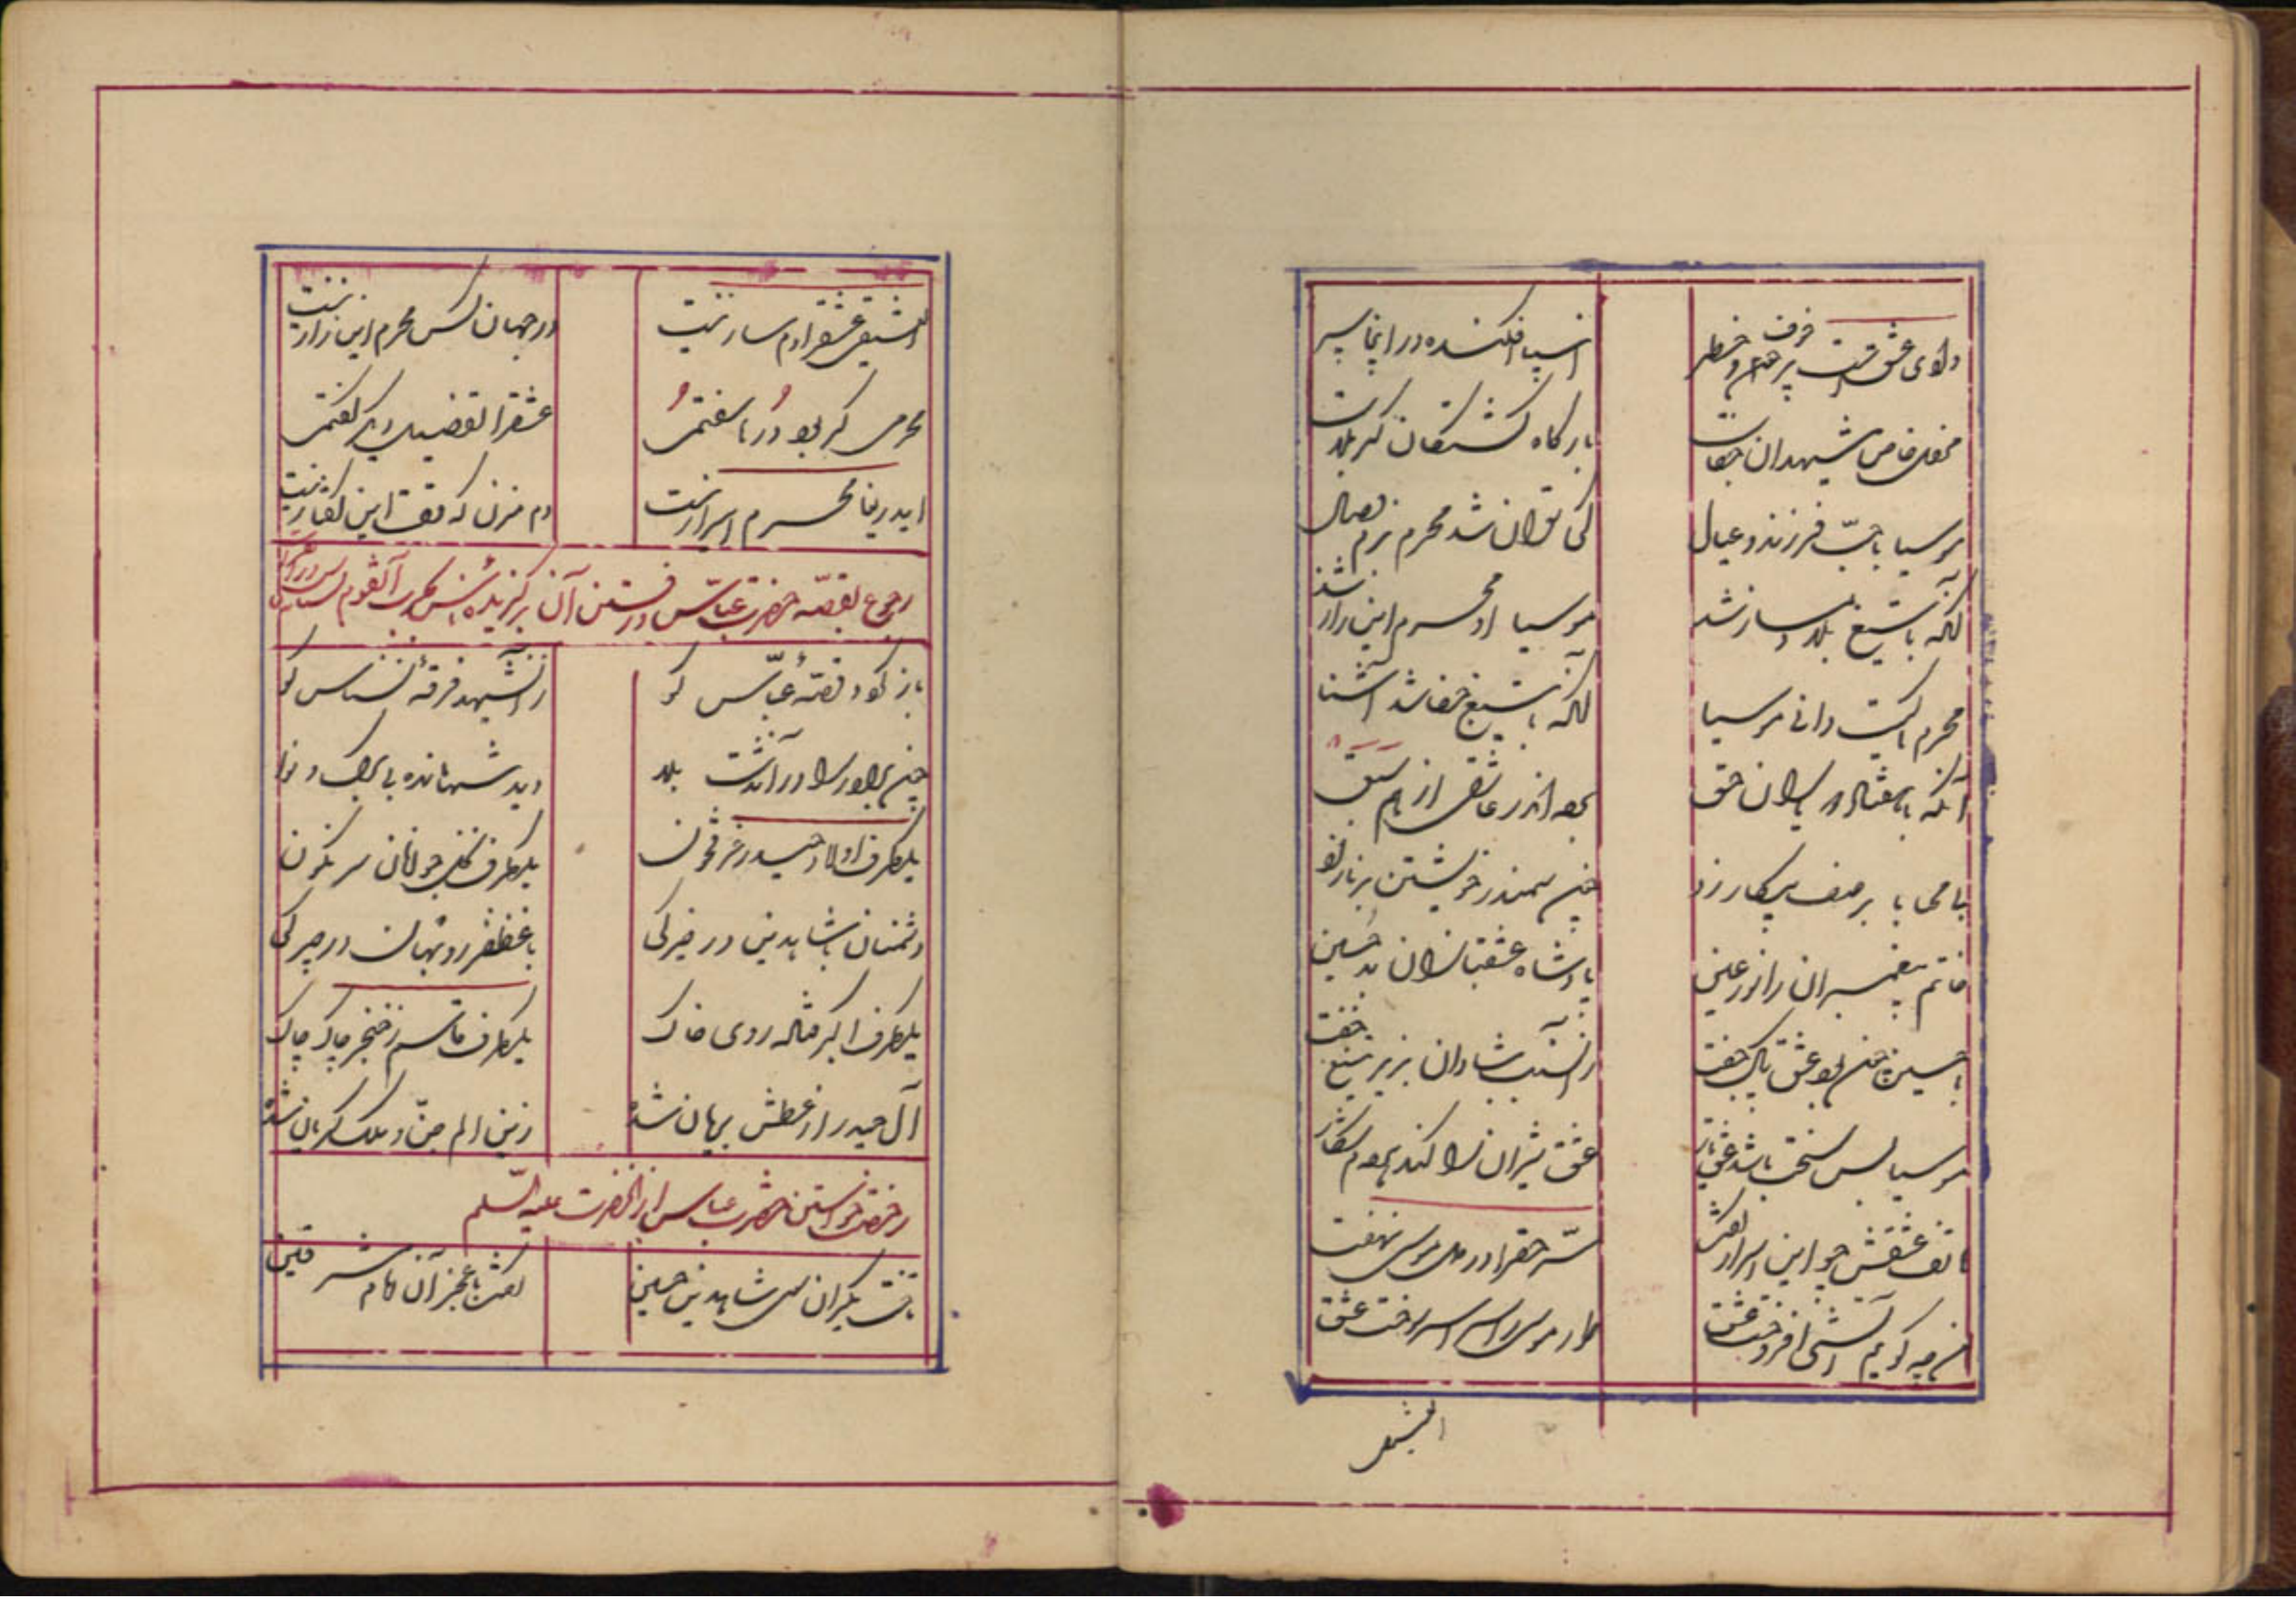 وادی عشق است پر خوف و خطر
انبیا افکنده در اینجا سپر
محفل خاص شهیدان خداست
بارگاه کشتگان کربلاست
موسیا با حبّ فرزند و عیال
کی توان شد محرم بزم وصال
آنکه با تیغ بلا دمساز شد
موسیا او محرم این راز شد
محرم ما کیست دانی موسیا
آنکه با تیغ جفا شد آشنا
آنکه با هفتاد و دو یاران حق
برده اندر عاشقی از هم سبق
با محابا بر صف پیکار زد
چون سمندر خویشتن بر نار زد
خاتم پیغمبران را نور عین
پادشاه عشقبازان حسین
با حسین چون بود عشق پاک جفت
زان سبب شادان بزیر تیغ خفت
موسیا بس سخت باشد عشق
عشق شیران را کند
هاتف عشقش چو این اسرار گفت
سرّ حق را در دل موسی نهفت
من چه گویم آتشی افروخت عشق
طور موسی را سراسر سوخت عشق
الشیق
عشق را دمساز نیست
در جهان کس محرم این راز نیست
محرمی گر بود دُرها سفتمی
عشق را تفضیل دیگر گفتمی
ای دریغا محرم اسرار نیست
دم مزن که وقت این گفتار نیست
رجوع بقصّه حضرت عبّاس و رفتن آن برگزیده ناس بحرب آنقوم
باز گو و قصّهٔ عبّاس گو
زان شهید فرقهٔ نسناس گو
چون برادر را در آن دشت بلا
دید تنها مانده بی برگ و نوا
یکطرف اولاد حیدر غرق خون
یکطرف نخل جوانان سرنگون
دشمنان با شاه دین در خیرگی
با غضنفر روبهان در چیرگی
یکطرف اکبر فتاده روی خاک
یکطرف قاسم ز خنجر چاک چاک
آل حیدر از عطش بریان شده
زین الم جنّ و ملک گریان شده
رخصت خواستن حضرت عباس از آنحضرت علیه السّلم
تاخت یکران سوی شاه دین حسین
گفت با عجز آن امام